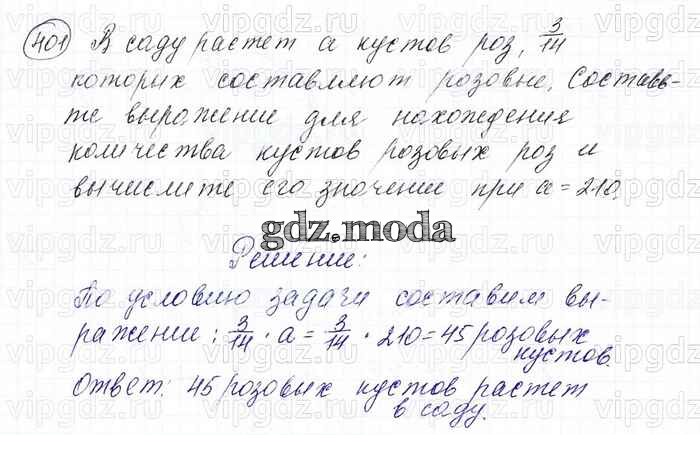 401 В саду растет a кустов роз, 3/14
которых составляют розовые. Составь-
те выражение для нахождения
количества кустов розовых роз и
вычислите его значении при a = 210.
gdz.moda
Решение:
По условию задачи составим вы-
ражении: 3/14 · a = 3/14 · 210 = 45 розовых
кустов.
Ответ: 45 розовых кустов растет
в саду.